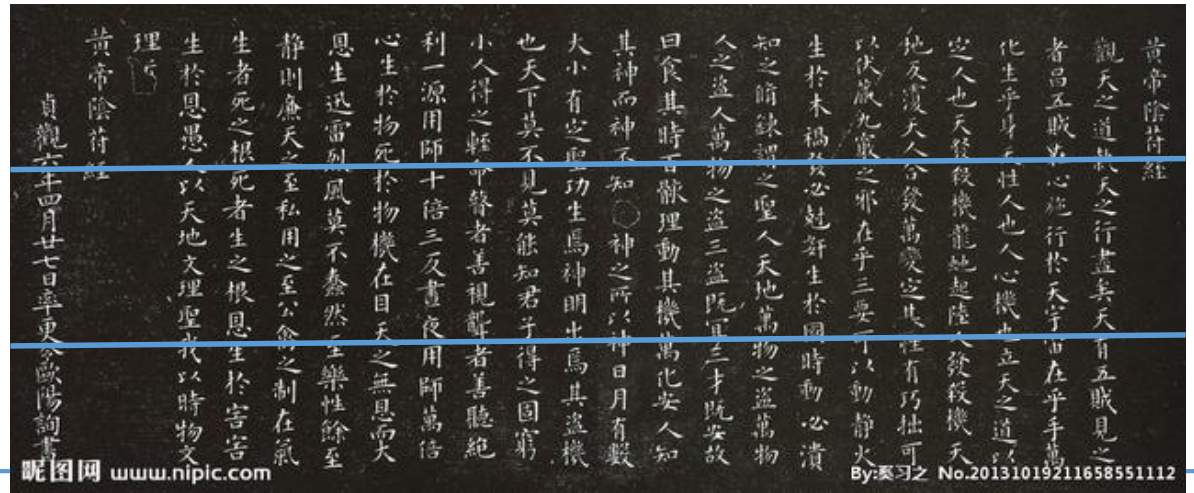 黄帝陰苻經
觀天之道執天之行盡矣天有五賊見之
者昌五賊在心施行於天宇宙在乎手萬
化生乎身天性人也人心機也立天之道以
定人也天發殺機龍虵起陸人發殺機天
地反覆天人合發萬變定基性有巧拙可
以伏藏九竅之邪在乎三要可以動静火
生於木禍發必尅姧生於國時動必潰
知之脩錬謂之聖人天地萬物之盜萬物
人之盜人萬物之盜三盜既宜三才既安故
曰食其時百骸理動其機萬化安人知
其神而神不知神之所以神日月有數
大小有定聖功生焉神明出焉其盜機
也天下莫不見莫能知君子得之固窮
小人得之輕命瞽者善視聾者善聽絶
利一源用師十倍三反晝夜用師萬倍
心生於物死於物機在目天之無恩而大
恩生迅雷烈風莫不蠢然至樂性餘至
静則廉天之至私用之至公禽之制在氣
生者死之根死者生之根恩生於害害
生於恩愚人以天地文理聖我以時物文
理
黄帝陰苻經
貞觀六年四月廿七日率更令歐陽詢書
昵图网 www.nipic.com
By:奚习之 No.20131019211658551112